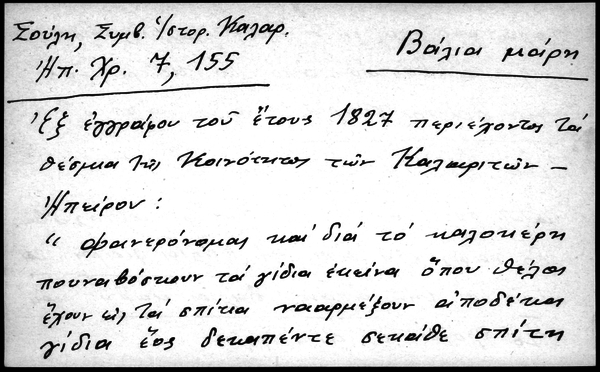 Σούλη, Συμβ. Ἱστορ. Καλαρ.
Ἠπ. Χρ. 7, 155
Βάλια μαίρη
Ἐξ ἐγγράφου τοῦ ἔτους 1827 περιέχοντος τά
θέσμια τῆς Κοινότητος τῶν Καλαριτῶν –
Ἠπείρου:
“ φαινερόνομας καί διά τό καλοκέρη
πουναβόσκουν τά γίδια ἐκείνα ὅπου θέλει
ἔχουν εἰς τά σπίτια νααρμέξουν ἀποδέκα
γίδια ἕος δεκαπέντε σεκάθε σπίτη